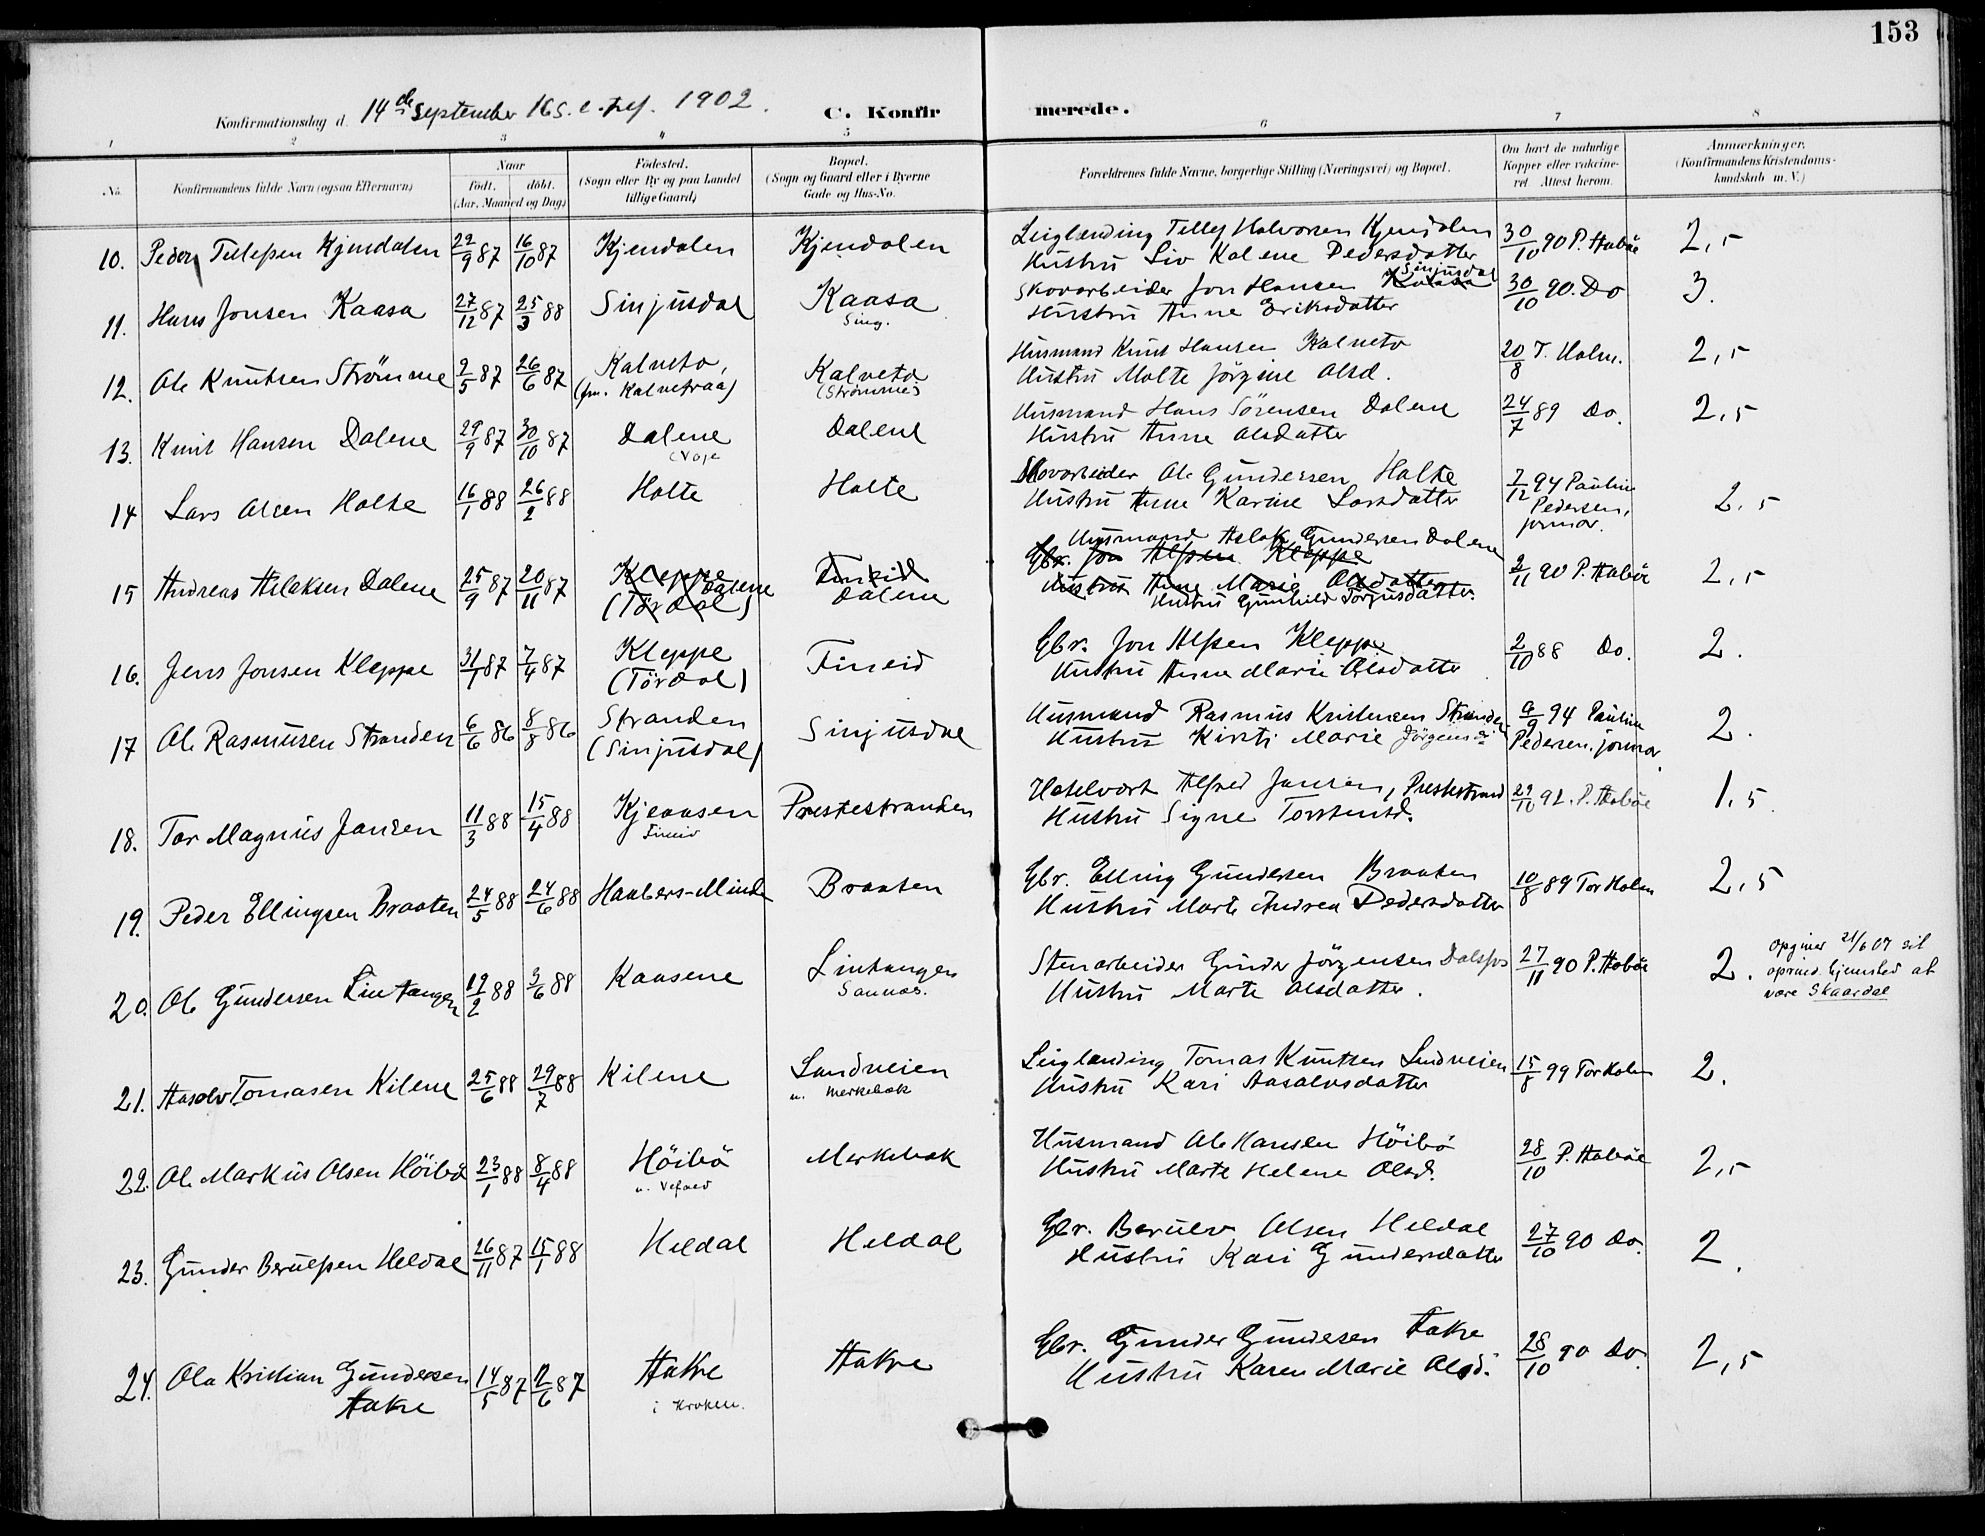 153
Konfirmationsdag d. 14de September 16 S. e. tref. 1902. C. Konfirmerede.
1 2 3 4 5 6 7 8
No. Konfirmandens fulde Navn (ogsaa Efternavn) Naar født. døbt. (Aar, Maaned og Dag) Fødested. (Sogn eller By og paa Landet tillige Gaard) Bopæl. (Sogn og Gaard eller i Byerne Gade og Hus-No. Forældrenes fulde Navne, borgerlige Stilling (Næringsvei) og Bopæl. Om havt de naturlige Kopper eller vaccineret. Attest herom. Anmærkninger. (Konfirmandens Kristendomskundskab m. V.)
10. Peder Tellefsen Kjendalen 29/9 87 16/10 87 Kjendalen Kjendalen Leiglænding Tellef Halvorsen Kjendalen 30/10 90 P. Haabøe 2,5
Hustru Liv Kalene Pedersdatter
11. Hans Jonsen Kaasa 27/12 87 25/3 88 Sinjusdal Kaasa Sing. Skovarbeider Jon Hansen Kaasa Sinjusdal 30/10 90. Do 3.
Hustru Anne Eriksdatter
12. Ole Knutsen Strømme 9/5 87 26/6 87 Kalveto, (fm. Kalvetraa) Kalveto (Strømme) Husmand Knut Hansen Kalveto 20/8 T. Holm. 2,5
Hustru Malte Jørgine Olsd.
13. Knut Hansen Dalene 29/9 87 30/10 87 Dalene Dalene Husmand Hans Sørensen Dalene 24/7 89 Do. 2,5
Hustru Anne Olsdatter
14 Lars Olsen Holte 16/1 88 26/2 88 Holte Holte Skovarbeider Ole Gundersen Holte 7/12 94 Pauline Pedersen, jormor. 2,5
Hustru Anne Karine Larsdatter
Husmand Aslak Gundersen Dalene
15 Andreas Aslaksen Dalene 25/9 87 20/11 87 Kleppe Dalene (Tørdal) Fineid Dalene Gbr. Jon Alfsen Kleppe 2/11 90 P. Haabøe 2,5
Hustru Anne Marie Olsdatter
Hustru Gunhild Torgusdatter.
16. Jens Jonsen Kleppe 31/1 87 7/4 87 Kleppe (Tørdal) Fineid Gbr. Jon Alfsen Kleppe 2/10 88 Do. 2.
Hustru Anne Marie Olsdatter
17 Ole Rasmusen Stranden 6/6 86 8/8 86 Stranden (Sinjusdal) Sinjusdal Husmand Rasmus Kristensen Stranden 9/9 94 Pauline Pedersen. jormor. 2.
Hustru Kirsti Marie Jørgensd
18. Tor Magnus Jansen 11/3 88 15/4 88 Kjeaasen Fineid Prestestranden Hotelvært Alfred Jansen, Prestestrand 29/10 91. P. Haabøe 1,5
Hustru Signe Torstensd.
19. Peder Ellingsen Braaten 24/5 88 24/6 88 Haabers-Minde Braaten Gbr. Elling Gundersen Braaten 10/8 89 Tor Holm 2,5
Hustru Marte Andrea Pedersdatter
20. Ole Gundersen Lintangen 19/2 88 3/6 88 Kaasene Lintangen Sannes. Stenarbeider Gunder Jørgensen Dalsfos 27/11 90 P. Haabøe 2. opgiver 21/6 07 sit oprind. hjemsted at være Skaardal
Hustru Marte Olsdatter.
21. Aasolv Tomasen Kilene 25/6 88 29/7 88 Kilene Landveien u. Merkebæk Leiglænding Tomas Knutsen Landveien 15/8 99 Tor Holm 2.
Hustru Kari Aasolvsdatter
22. Ole Markus Olsen Høibø 23/1 88 8/4 88 Høibø u. Vefald Merkebæk Husmand Ole Hansen Høibø 28/10 P. Haabøe 2,5
Hustru Marte Helene Olsd.
23. Gunder Berulfsen Heldal 26/11 87 15/1 88 Heldal Heldal Gbr. Berulv Olsen Heldal 27/10 90 Do. 2.
Hustru Kari Gundersdatter
24. Ola Kristian Gundersen Aakre 14/5 87 12/6 87 Aakre i Kroken. Aakre Gbr. Gunder Gundersen Aakre 28/10 90 Do. 2,5
Hustru Karen Marie Olsd.